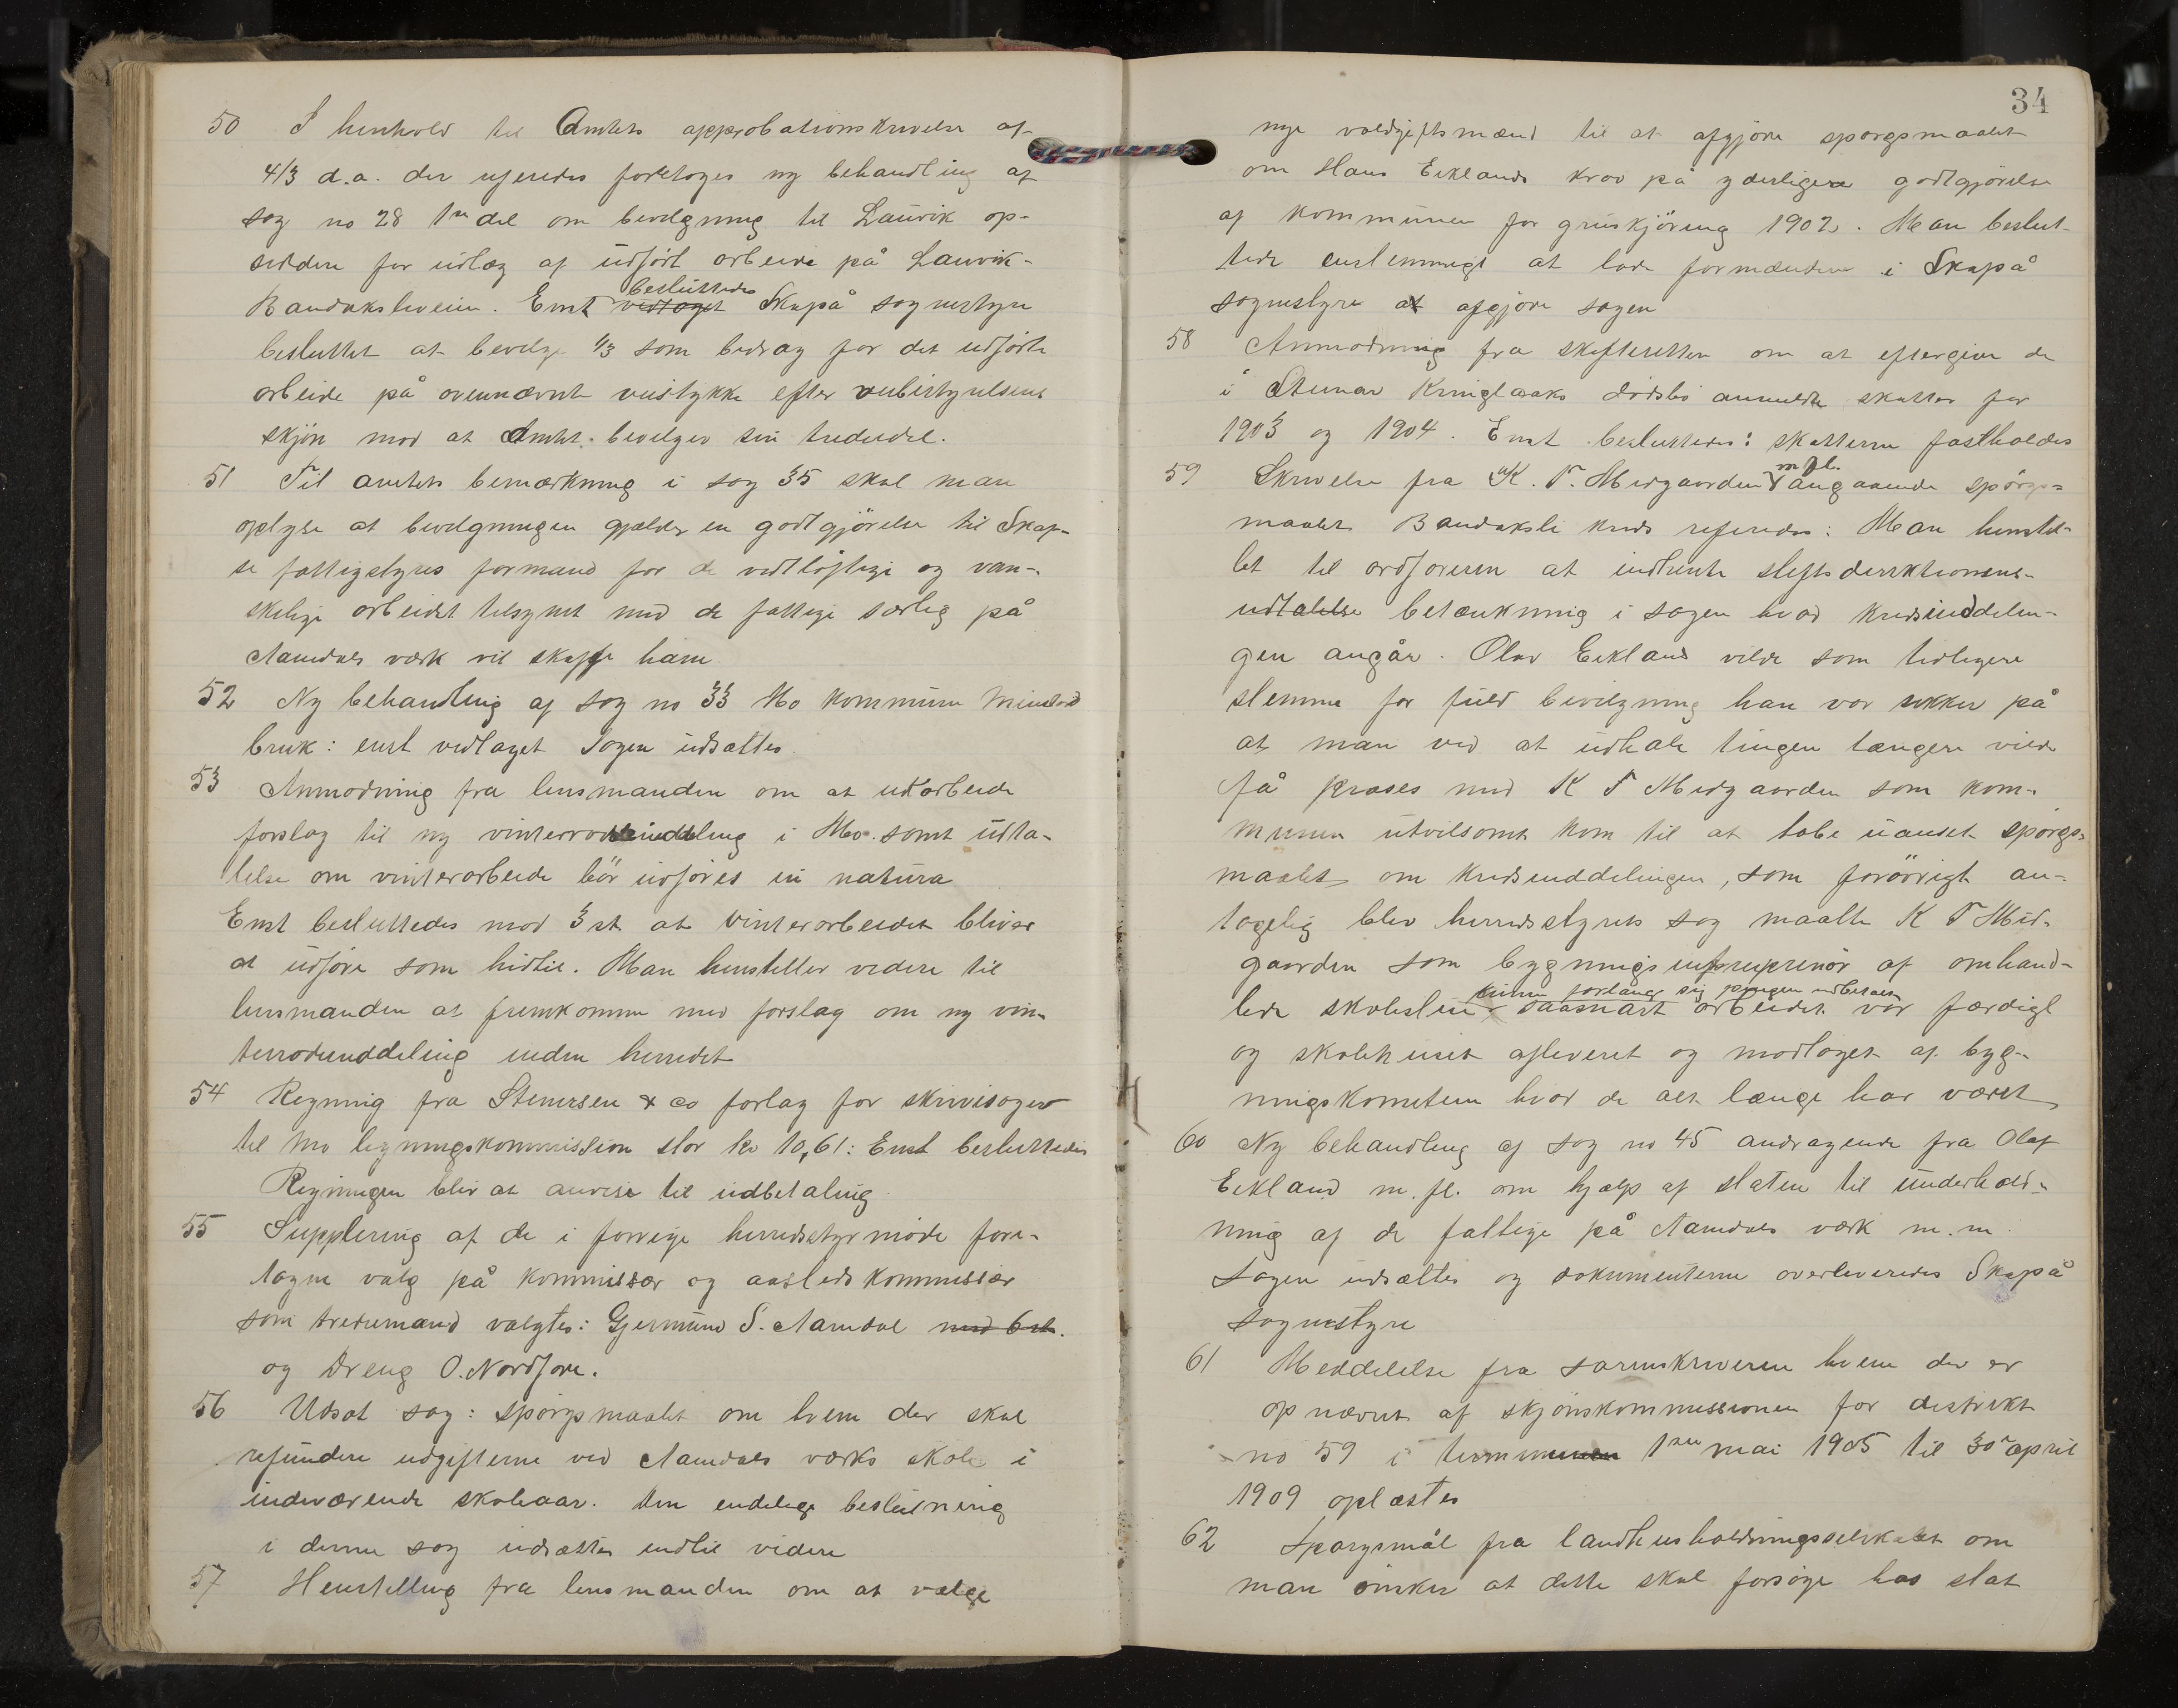 50 I henhold til Amtets approbationskrivelse af
4/3 d.a. der refereredes foretoges ny behandling af
sag no 28 1ste del om bevilgning til Lauvik op-
siddere for udlæg af udført arbeide på Lauvik-
Bandaksliveien. Enst vedtaget besluttedes Skapå sognestyre
besluttet at bevilge 1/3 som bidrag for det udførte
arbeide på ovennævnte veistykke efter veibestyrelsens
skjøn mod at Amtet bevilger sin trediedel.
51 Til amtets bemærkning i sag 35 skal man
oplyse at bevilgningen gjælder en godtgjörelse til Skap-
se fattigstyres formand for de vidtløftige og van-
skelige arbeidet tilsynet med de fattige særlig på
Aamdals værk vil skaffe ham
52 Ny behandling af sag no 33 Mo kommune
bruk: enst vedtaget Sagen udsættes.
53 Anmodning fra lensmanden om at udarbeide
forslag til ny vinterrodeinddeling i Mo. samt udta-
lelse om vinterarbeide bör udføres in natura
Enst besluttedes mod 3 st. at vinterarbeidet bliver
at udføre som hidtil. Man henstiller videre til
lensmanden at fremkomme med forslag om ny vin-
terrodeinddeling inden herredet
54 Regning fra Stenersen & co forlag for skrivesager
til Mo ligningskommission stor kr 10,61: Enst besluttedes
Regningen blir at anvise til udbetaling
55 Supplering af de i forrige herredsstyrmöde fore-
tagne valg på kommissær og aastedskommissær
som tredemand valgtes: Gjermund S. Aamdal med 6 st.
og Dreng O. Nordjore.
56 Udsat sag: spörgsmaalet om hvem der skal
refundere udgifterne ved Aamdals værks skole i
indeværende skoleaar. Den endelige beslutning
i denne sag udsættes indtil videre
57 Henstilling fra lensmanden om at vælge
34
nye voldgiftsmænd til at afgjöre spørgsmaalet
om Hans Eiklands krav på yderligere godtgjörelse
af kommunen for gruskjöring 1902. Man beslut-
tede enstemmigt at lade formænderne i Skapå
sognestyre at afgjöre sagen
58 Anmodning fra skifteretten om at eftergive de
i Steinar Kringlaaks dödsbo anmeldte skatter for
1903 og 1904. Enst besluttedes: skatterne fastholdes
59 Skrivelse fra K. T. Midgaarden m fl. angaaende spörgs-
maalet Bandaksli kreds refereredes: Man henstil-
let til ordföreren at indhente stiftsdirektionens
udtalelse betænkning i sagen hvad kredsinddelin-
gen angår. Olav Eikland vilde som tidligere
stemme for fuld bevilgning han var sikker på
at man ved at udhale tingen længere vilde
få proses med K T Midgaarden som kom-
munen utvilsomt kom til at tabe uanset spørgs-
maalet om kredsinddelingen, som forövrigt an-
tagelig blev herredsstyrets sag maatte K T Mid-
gaarden som bygningsentreprenör af omhand-
lede skolestue kunne forlange sig pengene udbetalt saasnart arbeidet var færdigt
og skolehuset afleveret og modtaget af byg-
ningskomiteen hvad de alt længe har været
60 Ny behandling af sag no 45 andragende fra Olaf
Eikland m. fl. om hjælp af staten til underhold-
ning af de fattige på Aamdals værk m. m.
Sagen udsættes og dokumenterne overleveredes Skapå
sognestyre
61 Meddelelse fra sorenskriveren hvem der er
opnævnt af skjönskommissionen for distrikt
no 59 i terminen 1ste mai 1905 til 30te april
1909 oplæstes
62 Spørgsmål fra landhusholdningsselskabet om
man önsker at dette skal forsöge hos stat